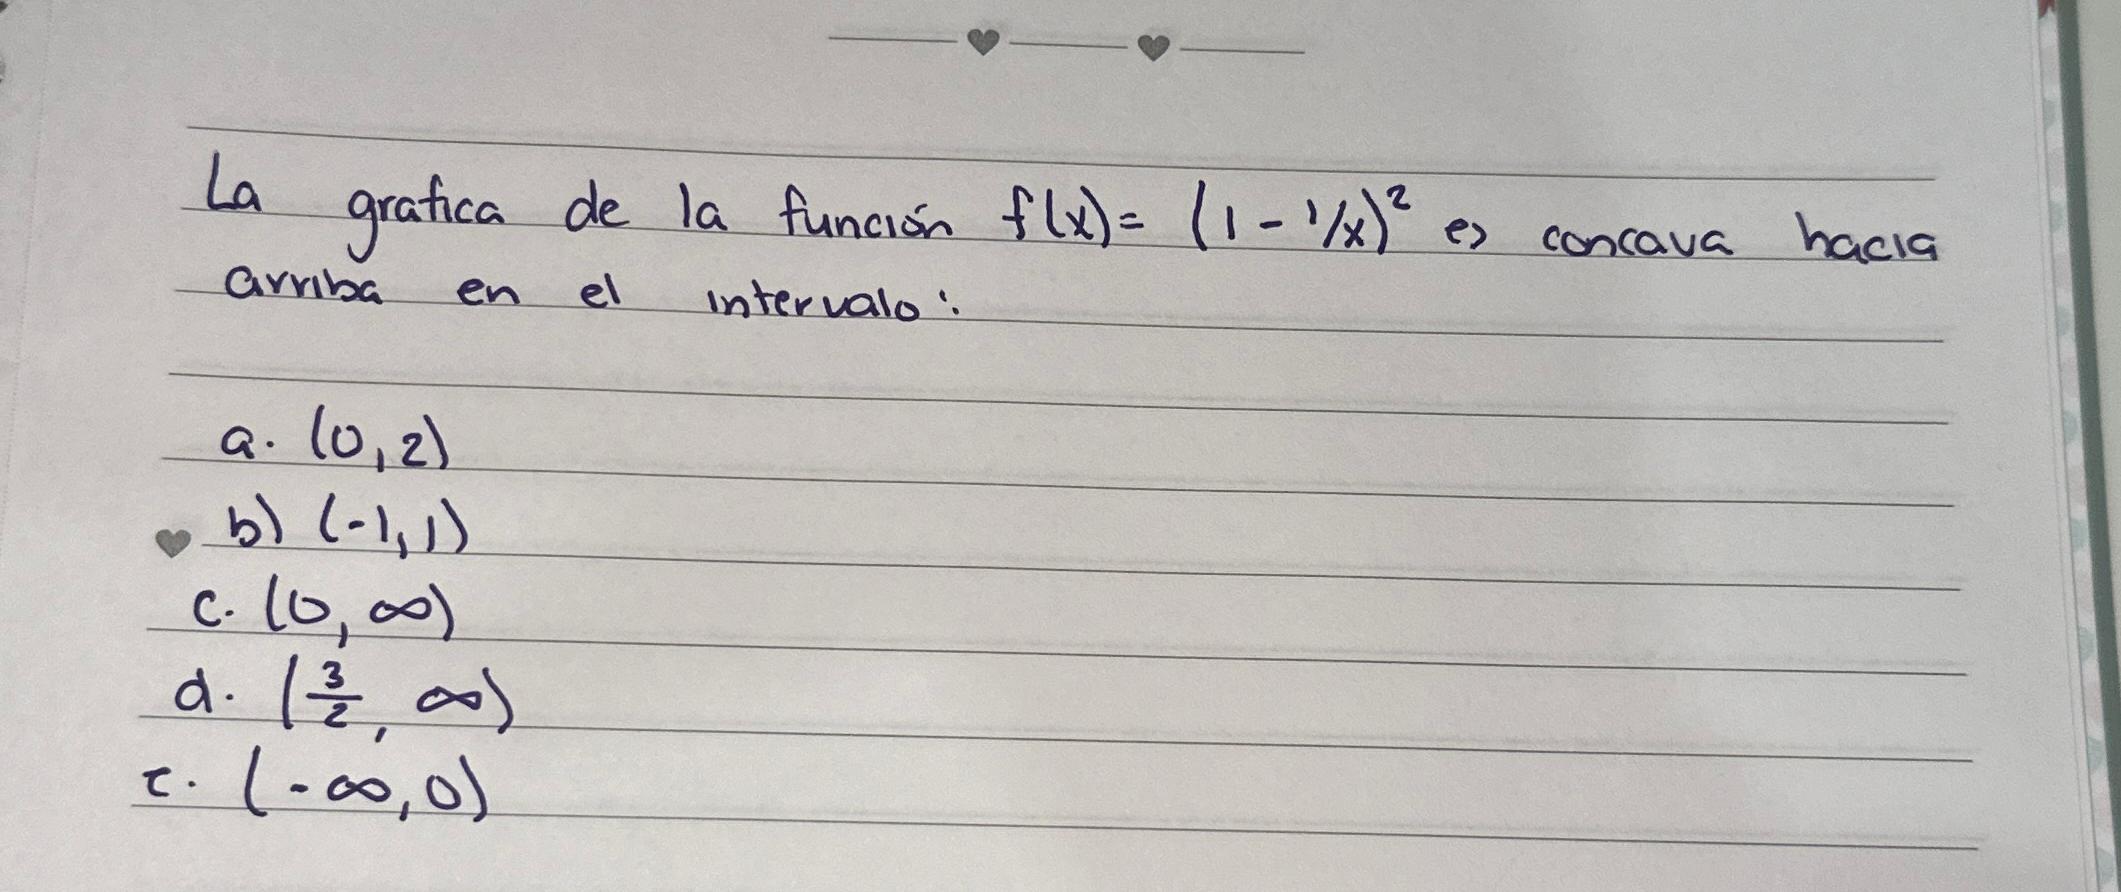 La grafica de la función f(x)= (1 - 1/x)² es concava hacia
arriba en el intervalo:
a. (0,2)
b) (-1,1)
c. (0, ∞)
d. (3/2, ∞)
e. (-∞,0)